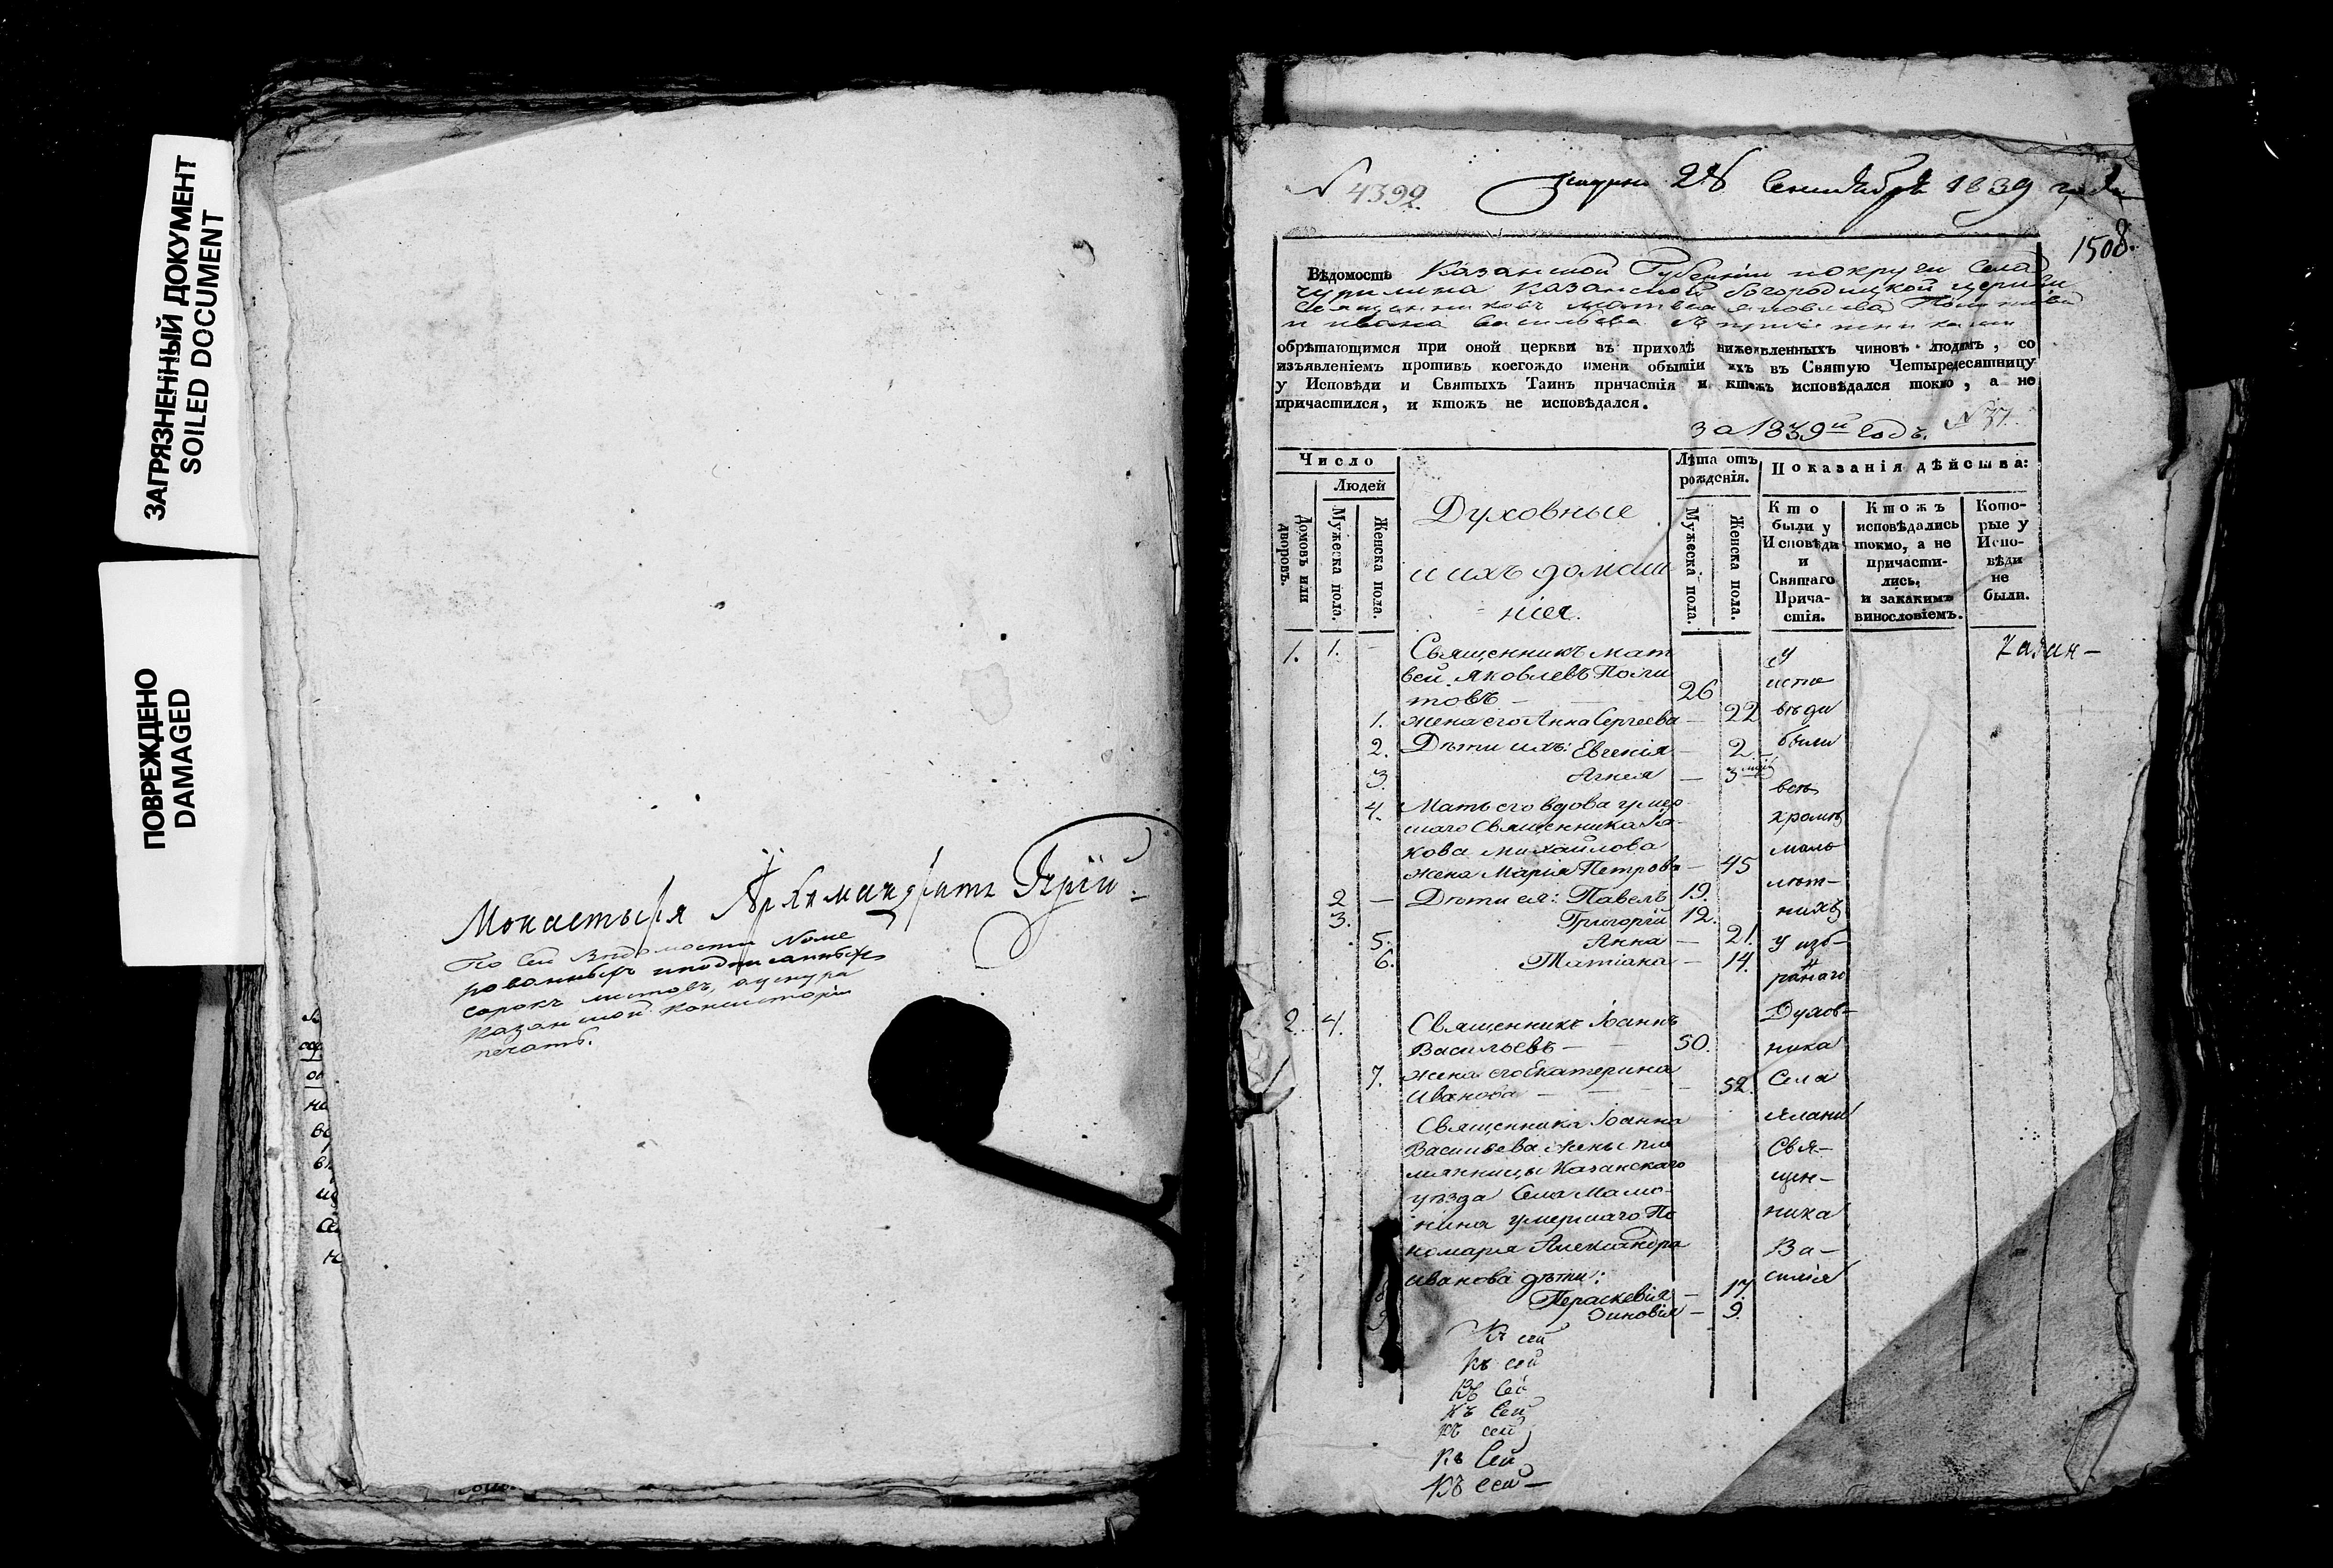 ЗАГРЯЗНЕННЫЙ ДОКУМЕНТ
SOILED DOCUMENT
ПОВРЕЖДЕНО
DAMAGED
Монастыря Архимандритъ Гурій
По сей Ведомости Номе
рованныхъ и подписанныхъ
сорокъ листовъ, а шнура
Казанской Консисторіи
печать.
N 4392.
28 Сентября 1839 года
1508.
Вѣдомость Казанской Губерніи и округи Села
Чурилина Казанской Богородицкой церкви
Священниковъ Матвея Яковлева
и Ивана Васильева съ причетниками
обрѣтающимся при оной церкви въ приходѣ нижеявленныхъ чиновъ людямъ, со
изъявленіемъ противъ коегождо имени обытіи ихъ въ Святую Четыредесятницу
у Исповѣди и Святыхъ Таинъ причастія и ктожъ исповѣдался токмо, а не
причастился, и ктожъ не исповѣдался.
за 1839й годъ. N 37.
Число
Людей
Домовъ или дворовъ.
Мужеска пола.
Женска пола.
Духовные
и ихъ домаш
нія.
Лѣта отъ рожденія.
Мужеска пола.
Женска пола.
Показанія дѣйства:
Кто были у Исповѣди и Святаго Прича-стія.
Ктожъ исповѣдались токмо, а не причасти-лись, и закакимъ винословіемъ.
Кото-рые у Испо-вѣди не были.
1. 1. – Священникъ Мат
вей Яковлевъ Поли
товъ – 26
1. жена его Анна Сергеева – 22
2. Дѣти ихъ: Евгенія – 2
3. Агнея – 3
4. Мать его вдова умер
шаго Священника Іа
кова Михайлова
жена Марія Петрова – 45
2 – Дѣти ея: Павелъ 19.
3. Григорій 12.
5. Анна – 21.
6. Татіана – 14.
2. 4. Священникъ Іоаннъ
Васильевъ – 50.
7. жена его Екатерина
Иванова – 52.
Священника Іоанна
Васильева жены пле
мянницы Казанскаго
уѣзда Села Мамо-
нина умершаго По
номаря Александра
Иванова дѣти:
8 Пераскевія – 17.
9 Зиновія – 9.
у
испо
вѣди
были
всѣ
кромѣ
мало
лѣт-
нихъ
у изб-
раннаго
Духов-
ника
Села
Свя-
щен-
ника
Ва-
силія
Казан-
Къ сей
Къ сей
Къ сей
Къ сей
Къ сей
Къ сей
Къ сей –